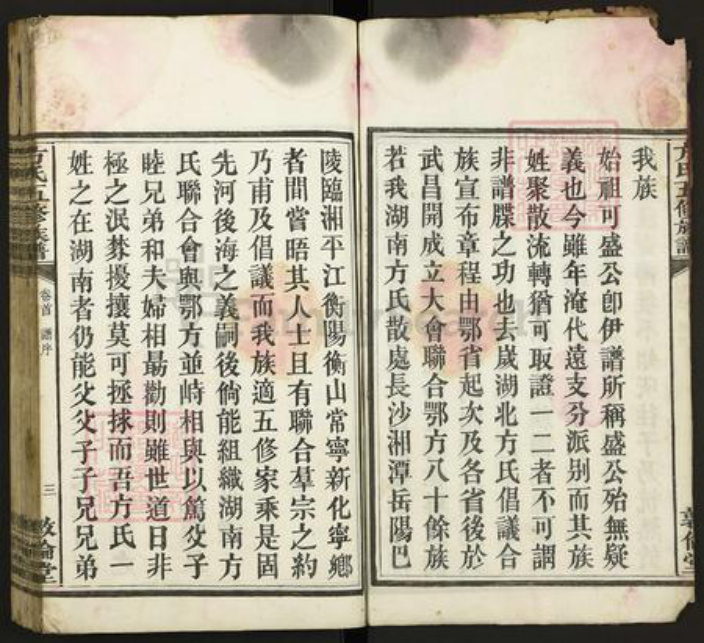 我族
始祖可盛公卽伊譜所稱盛公殆無疑
義也今雖年淹代遠支分派别而其族
姓聚散流轉猶可取證一二者不可謂
非譜牒之功也去歲湖北方氏倡議合
族宣布章程由鄂省起次及各省後於
武昌開成立大會聯合鄂方八十餘族
若我湖南方氏散處長沙湘潭岳陽巴
陵臨湘平江衡陽衡山常寧新化寧鄉
者間嘗晤其人士且有聯合羣宗之約
乃甫及倡議而我族適五修家乘是固
先河後海之義嗣後倘能組織湖南方
氏聯合會與鄂方並峙相與以篤父子
睦兄弟和夫婦相勗勸則雖世道日非
極之泯棼擾攘莫可拯捄而吾方氏一
姓之在湖南者仍能父父子子兄兄弟
方氏五修族譜
卷首 譜序
三
敦倫堂